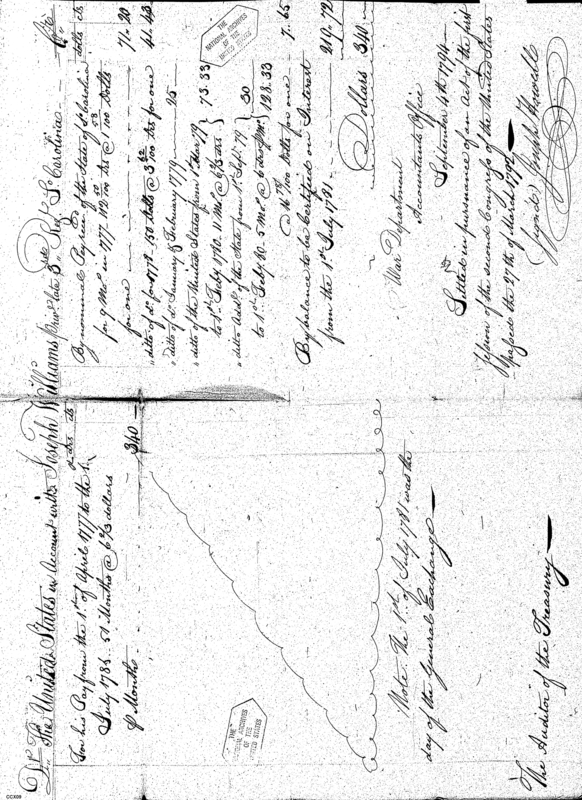 Dr. The United States in Account with Joseph Williams Priv. late 3d. Regt. So. Carolina Cr.
Dolrs cts
For his Pay from the 1st. of April 1777 to the 1.
July 1781. 51 Months @ 6 2/3 dollars
pr Months 340 —
Note The 1st of July 1781 was the
day of the General Exchange —
The Auditor of the Treasury —
dolls cts
By nominal Payment of the State of So. Carolina
for 9 Mos in 1777
for one 71. 20
ditto of do. for 1778. 150 dolls @ for one 41. 43
ditto of do. January & February 1779 — 25 —
ditto of the United States from 1st. Mar 79
to 1st. July 1780. 11 Mos @ 6 2/3 drs 73. 33
ditto of the State from 1st. Sept. 79 30
to 1st. July 80. 5 Mos @ 6 drs pr Mo 128. 33
@ 100 dolls for one — 7. 65
By balance to be Certified on Interest
from the 1st July 1781 219. 72
Dollars 340 —
War Department
Accountants Office
September 4th. 1794 —
Settled in pursuance of an Act of the first
Session of the second Congress of the United States
passed the 27th. of March 1792
Signed Joseph Howell
THE
NATIONAL ARCHIVES
OF THE
UNITED STATES
THE
NATIONAL ARCHIVES
OF THE
UNITED STATES
CCX09